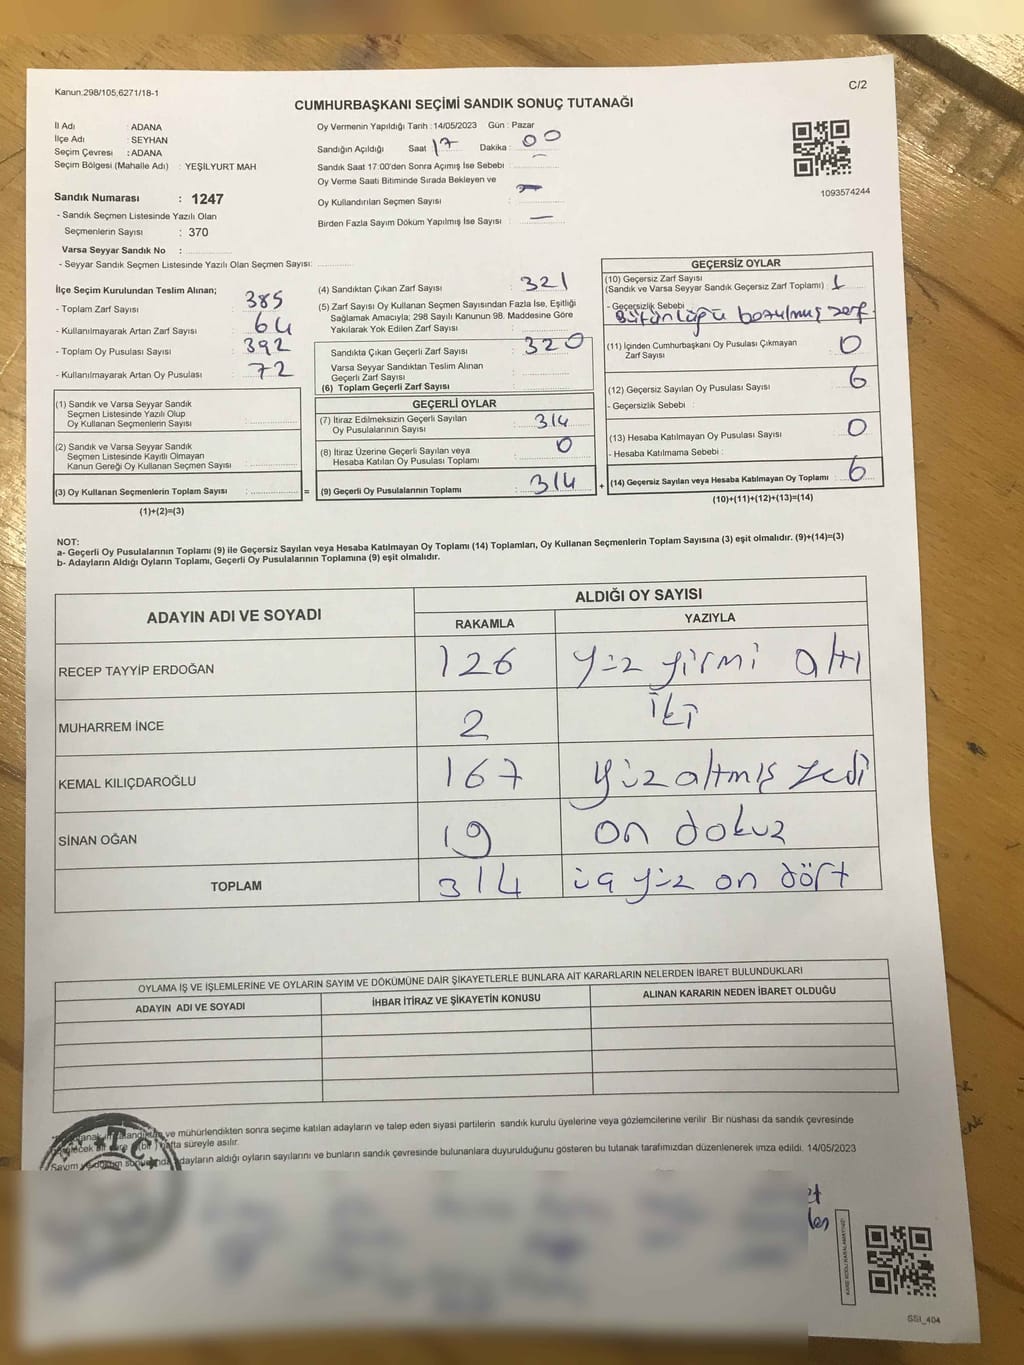 Kanun:298/105;6271/18-1
C/2
CUMHURBAŞKANI SEÇİMİ SANDIK SONUÇ TUTANAĞI
İl Adı : ADANA
İlçe Adı : SEYHAN
Seçim Çevresi : ADANA
Seçim Bölgesi (Mahalle Adı) : YEŞİLYURT MAH
Sandık Numarası : 1247
- Sandık Seçmen Listesinde Yazılı Olan
Seçmenlerin Sayısı : 370
Varsa Seyyar Sandık No :
- Seyyar Sandık Seçmen Listesinde Yazılı Olan Seçmen Sayısı:
Oy Vermenin Yapıldığı Tarih : 14/05/2023 Gün : Pazar
Sandığın Açıldığı Saat 17 Dakika : 00
Sandık Saat 17:00'den Sonra Açımış İse Sebebi : –
Oy Verme Saati Bitiminde Sırada Bekleyen ve
Oy Kullandırılan Seçmen Sayısı : –
Birden Fazla Sayım Döküm Yapılmış İse Sayısı : –
1093574244
İlçe Seçim Kurulundan Teslim Alınan;
- Toplam Zarf Sayısı : 385
- Kullanılmayarak Artan Zarf Sayısı : 64
- Toplam Oy Pusulası Sayısı : 392
- Kullanılmayarak Artan Oy Pusulası : 72
(1) Sandık ve Varsa Seyyar Sandık
Seçmen Listesinde Yazılı Olup
Oy Kullanan Seçmenlerin Sayısı :
(2) Sandık ve Varsa Seyyar Sandık
Seçmen Listesinde Kayıtlı Olmayan
Kanun Gereği Oy Kullanan Seçmen Sayısı :
(3) Oy Kullanan Seçmenlerin Toplam Sayısı : =
(1)+(2)=(3)
(4) Sandıktan Çıkan Zarf Sayısı : 321
(5) Zarf Sayısı Oy Kullanan Seçmen Sayısından Fazla İse, Eşitliği
Sağlamak Amacıyla; 298 Sayılı Kanunun 98. Maddesine Göre
Yakılarak Yok Edilen Zarf Sayısı :
Sandıkta Çıkan Geçerli Zarf Sayısı : 320
Varsa Seyyar Sandıktan Teslim Alınan
Geçerli Zarf Sayısı :
(6) Toplam Geçerli Zarf Sayısı :
GEÇERLİ OYLAR
(7) İtiraz Edilmeksizin Geçerli Sayılan
Oy Pusulalarının Sayısı : 314
(8) İtiraz Üzerine Geçerli Sayılan veya
Hesaba Katılan Oy Pusulası Toplamı : 0
(9) Geçerli Oy Pusulalarının Toplamı : 314 +
GEÇERSİZ OYLAR
(10) Geçersiz Zarf Sayısı
(Sandık ve Varsa Seyyar Sandık Geçersiz Zarf Toplamı) : 1
- Geçersizlik Sebebi
Bütünlüğü bozulmuş zarf
(11) İçinden Cumhurbaşkanı Oy Pusulası Çıkmayan
Zarf Sayısı : 0
(12) Geçersiz Sayılan Oy Pusulası Sayısı : 6
- Geçersizlik Sebebi :
(13) Hesaba Katılmayan Oy Pusulası Sayısı : 0
- Hesaba Katılmama Sebebi :
(14) Geçersiz Sayılan veya Hesaba Katılmayan Oy Toplamı : 6
(10)+(11)+(12)+(13)=(14)
NOT:
a- Geçerli Oy Pusulalarının Toplamı (9) ile Geçersiz Sayılan veya Hesaba Katılmayan Oy Toplamı (14) Toplamları, Oy Kullanan Seçmenlerin Toplam Sayısına (3) eşit olmalıdır. (9)+(14)=(3)
b- Adayların Aldığı Oyların Toplamı, Geçerli Oy Pusulalarının Toplamına (9) eşit olmalıdır.
ADAYIN ADI VE SOYADI ALDIĞI OY SAYISI
RAKAMLA YAZIYLA
RECEP TAYYİP ERDOĞAN 126 yüz yirmi altı
MUHARREM İNCE 2 iki
KEMAL KILIÇDAROĞLU 167 yüz altmış yedi
SİNAN OĞAN 19 on dokuz
TOPLAM 314 üç yüz on dört
OYLAMA İŞ VE İŞLEMLERİNE VE OYLARIN SAYIM VE DÖKÜMÜNE DAİR ŞİKAYETLERLE BUNLARA AİT KARARLARIN NELERDEN İBARET BULUNDUKLARI
ADAYIN ADI VE SOYADI İHBAR İTİRAZ VE ŞİKAYETİN KONUSU ALINAN KARARIN NEDEN İBARET OLDUĞU
ve mühürlendikten sonra seçime katılan adayların ve talep eden siyasi partilerin sandık kurulu üyelerine veya gözlemcilerine verilir. Bir nüshası da sandık çevresinde
(bir) hafta süreyle asılır.
Sayım ve döküm sonucunda adayların aldığı oyların sayılarını ve bunların sandık çevresinde bulunanlara duyurulduğunu gösteren bu tutanak tarafımızdan düzenlenerek imza edildi. 14/05/2023
T.C.
SSI_404